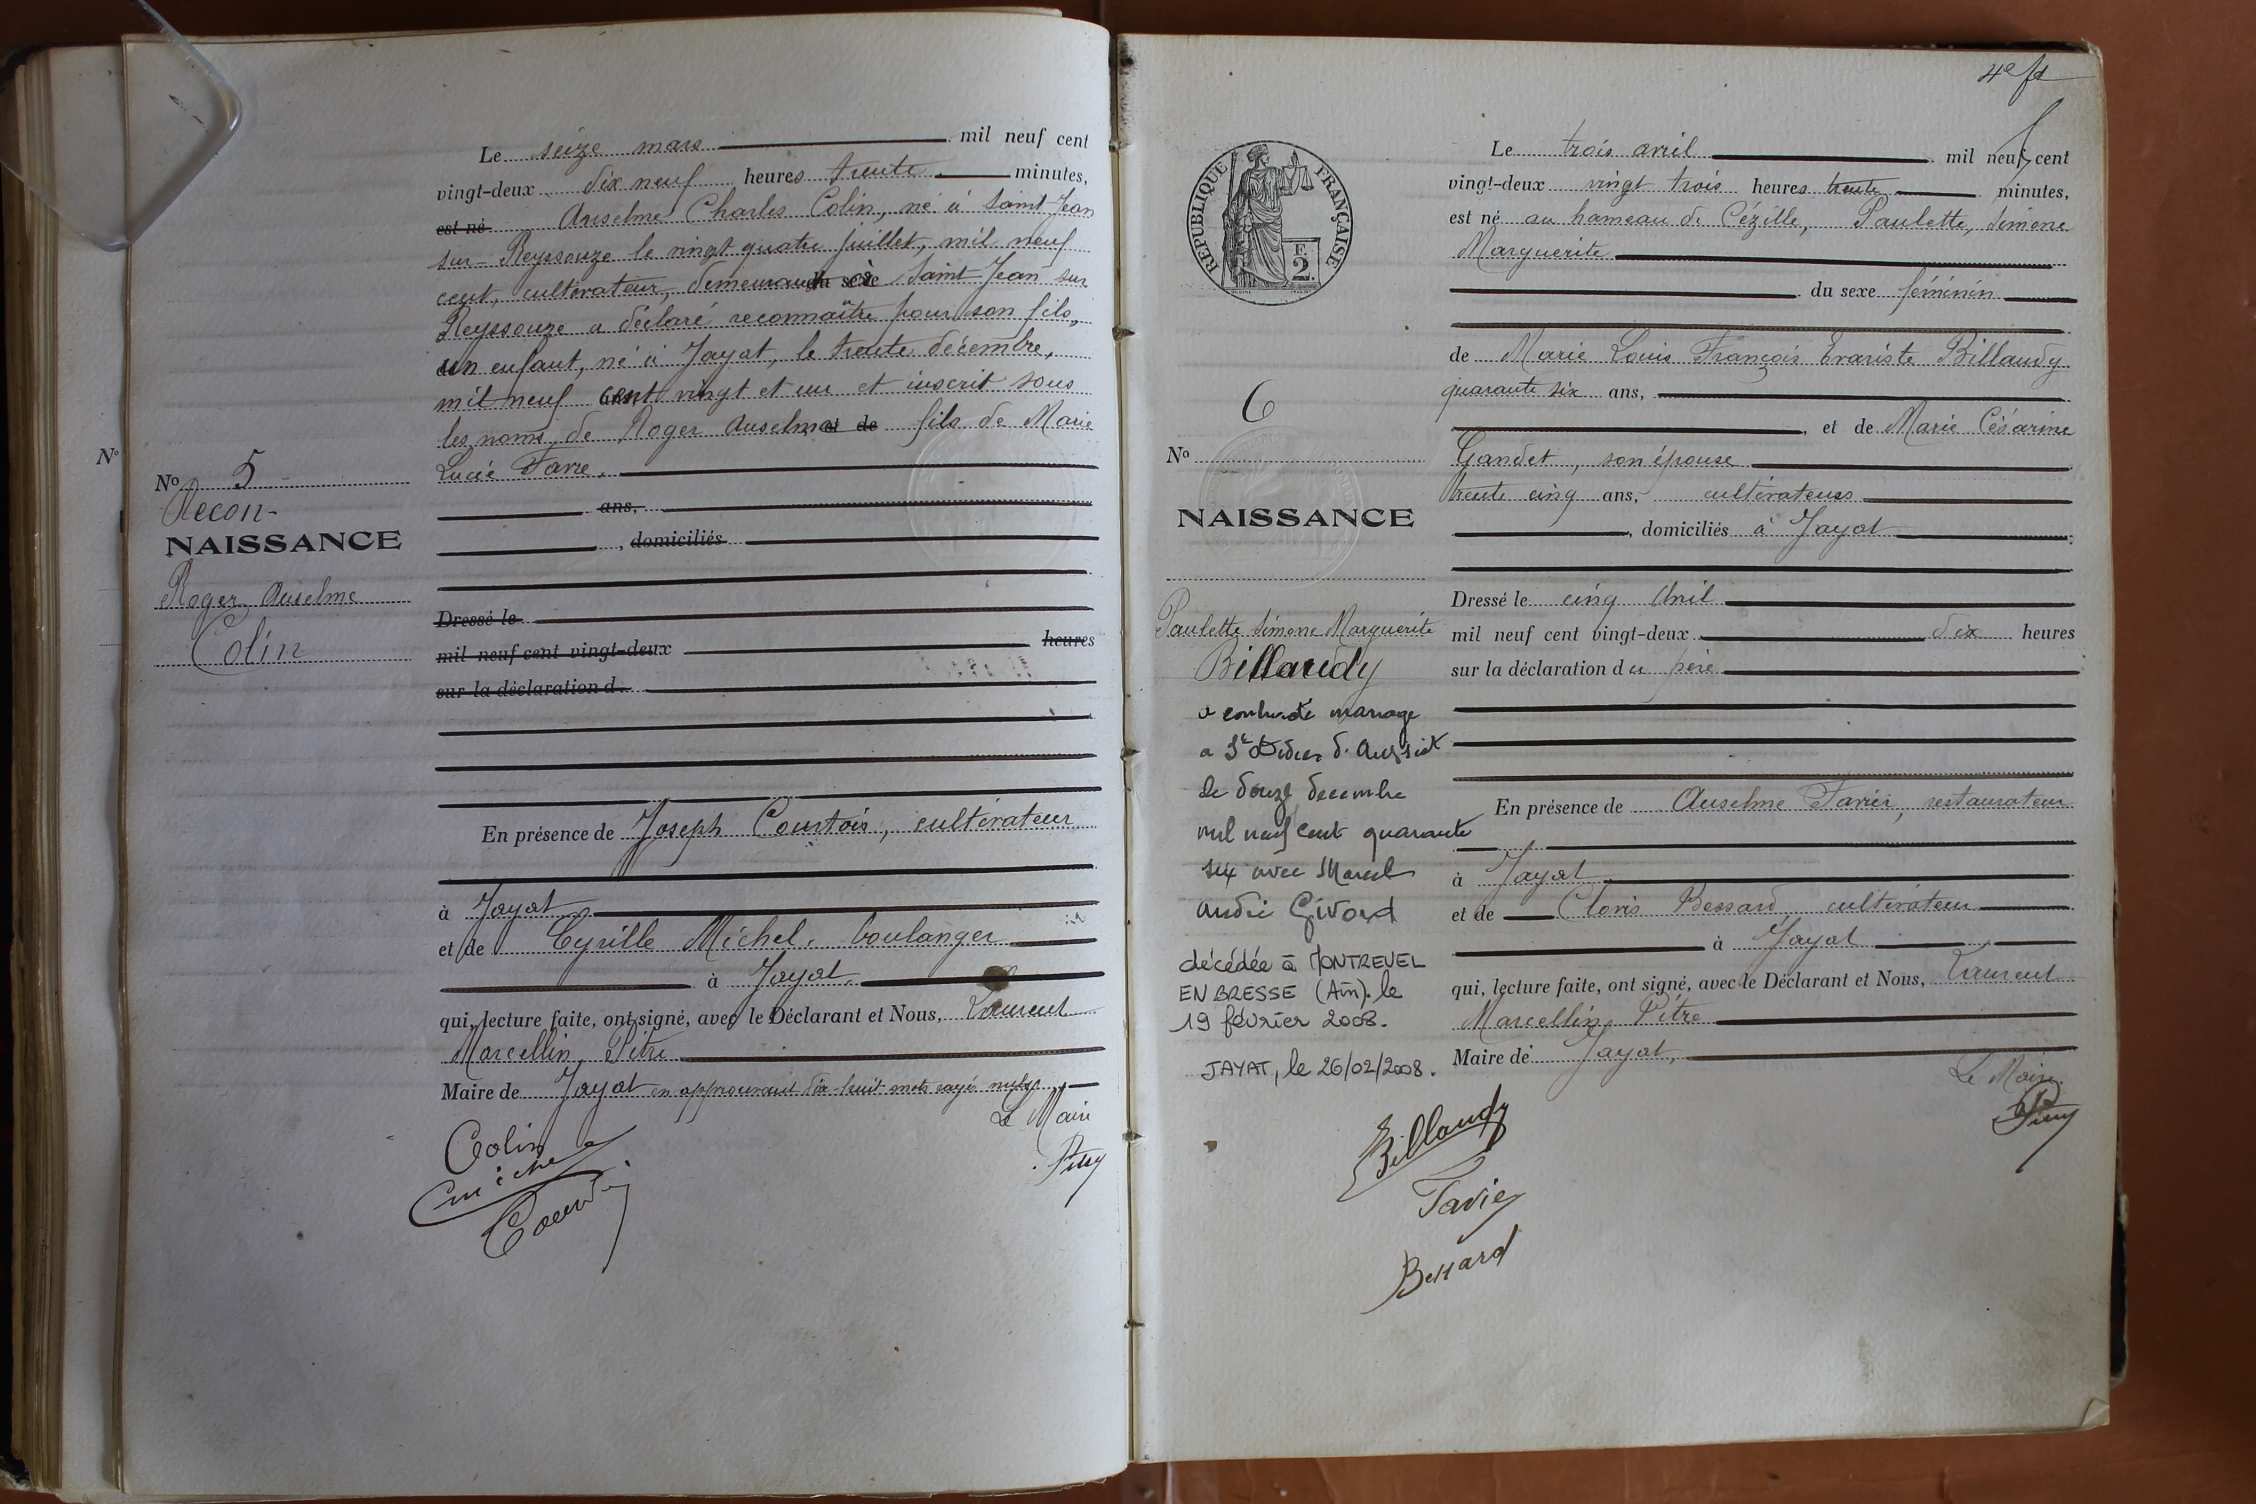 N°
N° 5
Recon-
NAISSANCE
Roger Anselme
Colin
Le seize mars mil neuf cent
vingt-deux dix neuf heures trente minutes,
est né Anselme Charles Colin, né à Saint Jean
sur Reyssouze le vingt quatre juillet, mil neuf
cent, cultivateur, demeurant à Saint-Jean sur
Reyssouze a déclaré reconnaître pour son fils,
un enfant, né à Jayat, le trente décembre,
mil neuf cent vingt et un et inscrit sous
les noms de Roger Anselme et de fils de Marie
Lucie Favre.
ans,
, domiciliés
Dressé le
mil neuf cent vingt-deux heures
sur la déclaration d
En présence de Joseph Courtois, cultivateur
à Jayat
et de Cyrille Michel, boulanger
à Jayat
qui, lecture faite, ont signé, avec le Déclarant et Nous, Laurent
Marcellin Pitre
Maire de Jayat en approuvant dix-huit mots rayés nuls
Le Maire
Colin
Michel
4e ft
RÉPUBLIQUE FRANÇAISE
F.
2.
6
N°
NAISSANCE
Paulette Simone Marguerite
Billaudy
a contracté mariage
a St Didier d'Aussiat
le douze decembre
mil neuf cent quarante
six avec Marcel
andré Givord
décédée à MONTREVEL
EN BRESSE (Ain). le
19 février 2008.
JAYAT, le 26/02/2008.
Le trois avril mil neuf cent
vingt-deux vingt trois heures trente minutes,
est né au hameau de Cézille, Paulette, Simone
Marguerite
du sexe féminin
de Marie Louis François Evariste Billaudy
quarante six ans,
, et de Marie Césarine
Gandet, son épouse
trente cinq ans, cultivateurs
, domiciliés à Jayat
Dressé le cinq Avril
mil neuf cent vingt-deux dix heures
sur la déclaration du père
En présence de Anselme Favier, restaurateur
à Jayat
et de Clovis Bessard, cultivateur
à Jayat
qui, lecture faite, ont signé, avec le Déclarant et Nous, Laurent
Marcellin Pitre
Maire de Jayat,
Le Maire
Billaudy
Favier
Bessard